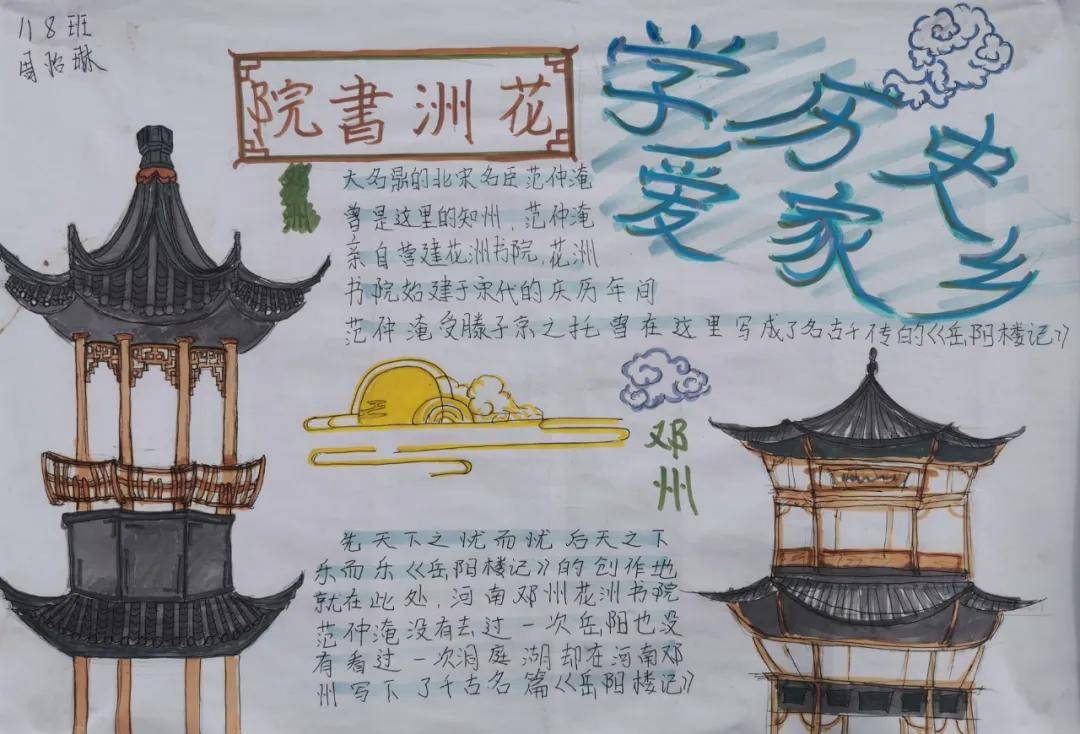 118班
周怡琳
花洲書院
学 史
爱家乡
大名鼎的北宋名臣范仲淹
曾是这里的知州，范仲淹
亲自营建花洲书院，花洲
书院始建于宋代的庆历年间
范仲淹受滕子京之托曾在这里写成了名古千传的《岳阳楼记》
邓州
先天下之忧而忧后天之下
乐而乐《岳阳楼记》的创作地
就在此处，河南邓州花洲书院
范仲淹没有去过一次岳阳也没
有看过一次洞庭湖却在河南邓
州写下了千古名篇《岳阳楼记》